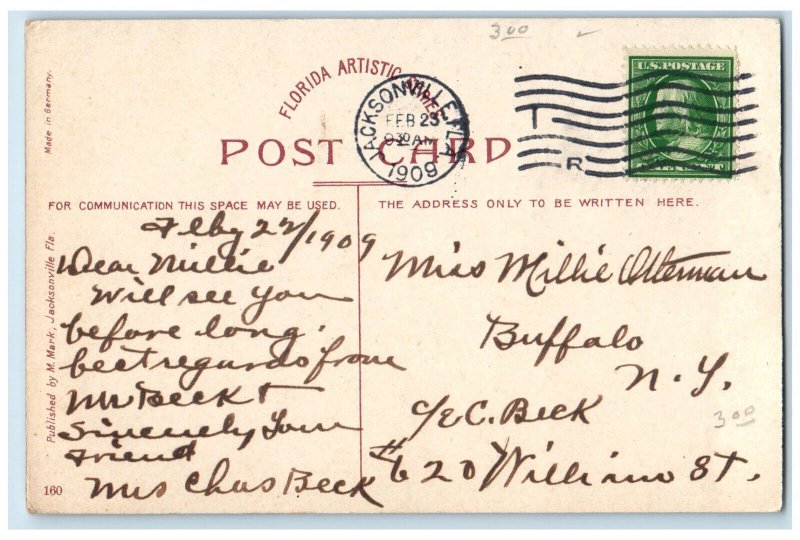 3.00
FLORIDA ARTISTIC SERIES
JACKSONVILLE, FLA.
FEB 23
9 30 AM
1909
T
R
U.S. POSTAGE
POST CARD
Made in Germany.
FOR COMMUNICATION THIS SPACE MAY BE USED.
THE ADDRESS ONLY TO BE WRITTEN HERE.
Published by M. Mark, Jacksonville Fla.
Feby 22/1909
Dear Millie
Will see you
before long.
best regards from
Mr Beck &
Sincerely Your
Friend
Mrs Chas Beck
Miss Millie Otterman
Buffalo
N.Y.
c/E C. Beck
#620 William St.
3.00
160